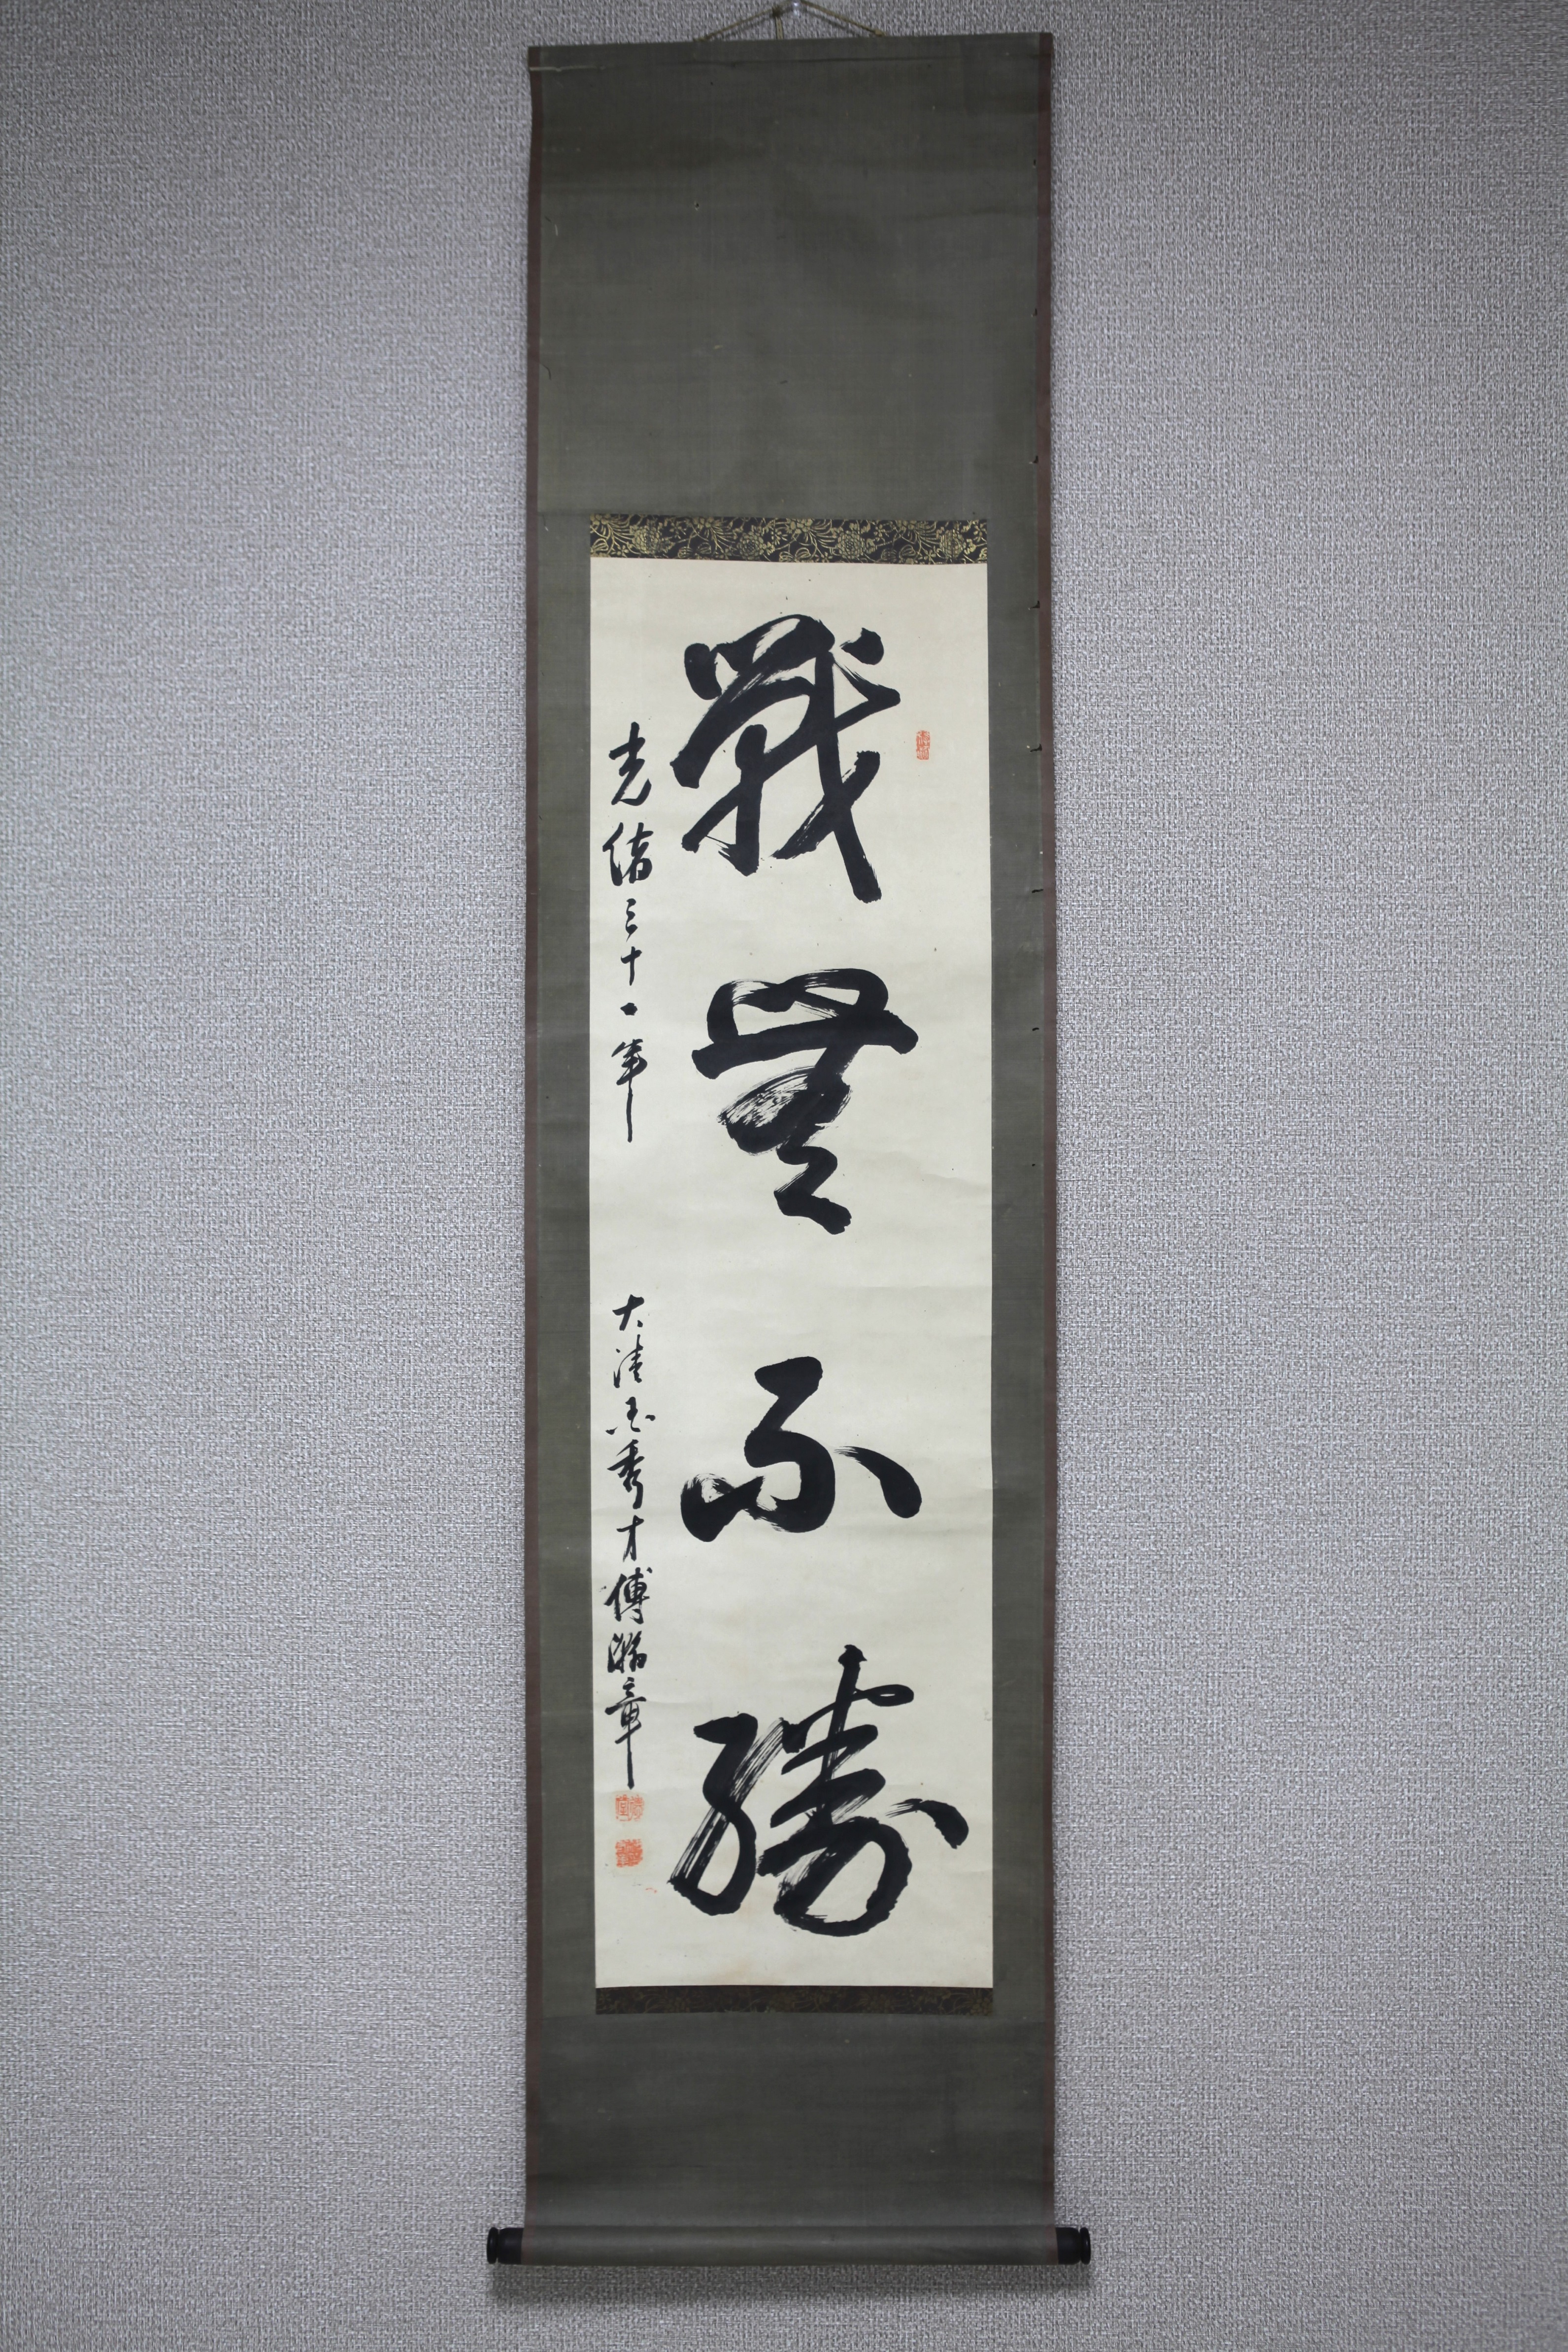 戰無不勝
光緒三十一年
大清國秀才傅瀚章